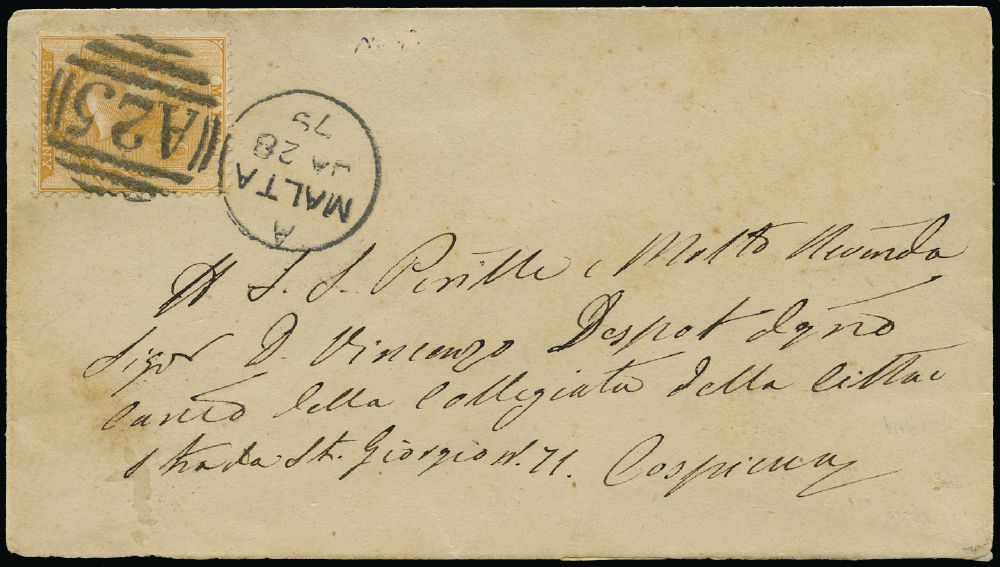 MALTA
HALFPENNY
A25
A
MALTA
JA 28
79
S. S. Perille e Molto Revenda
Sigor D. Vincenzo Despot Degno
Canco della Collegiata della Citta
Strada St. Giorgio N. 71. Cospicua